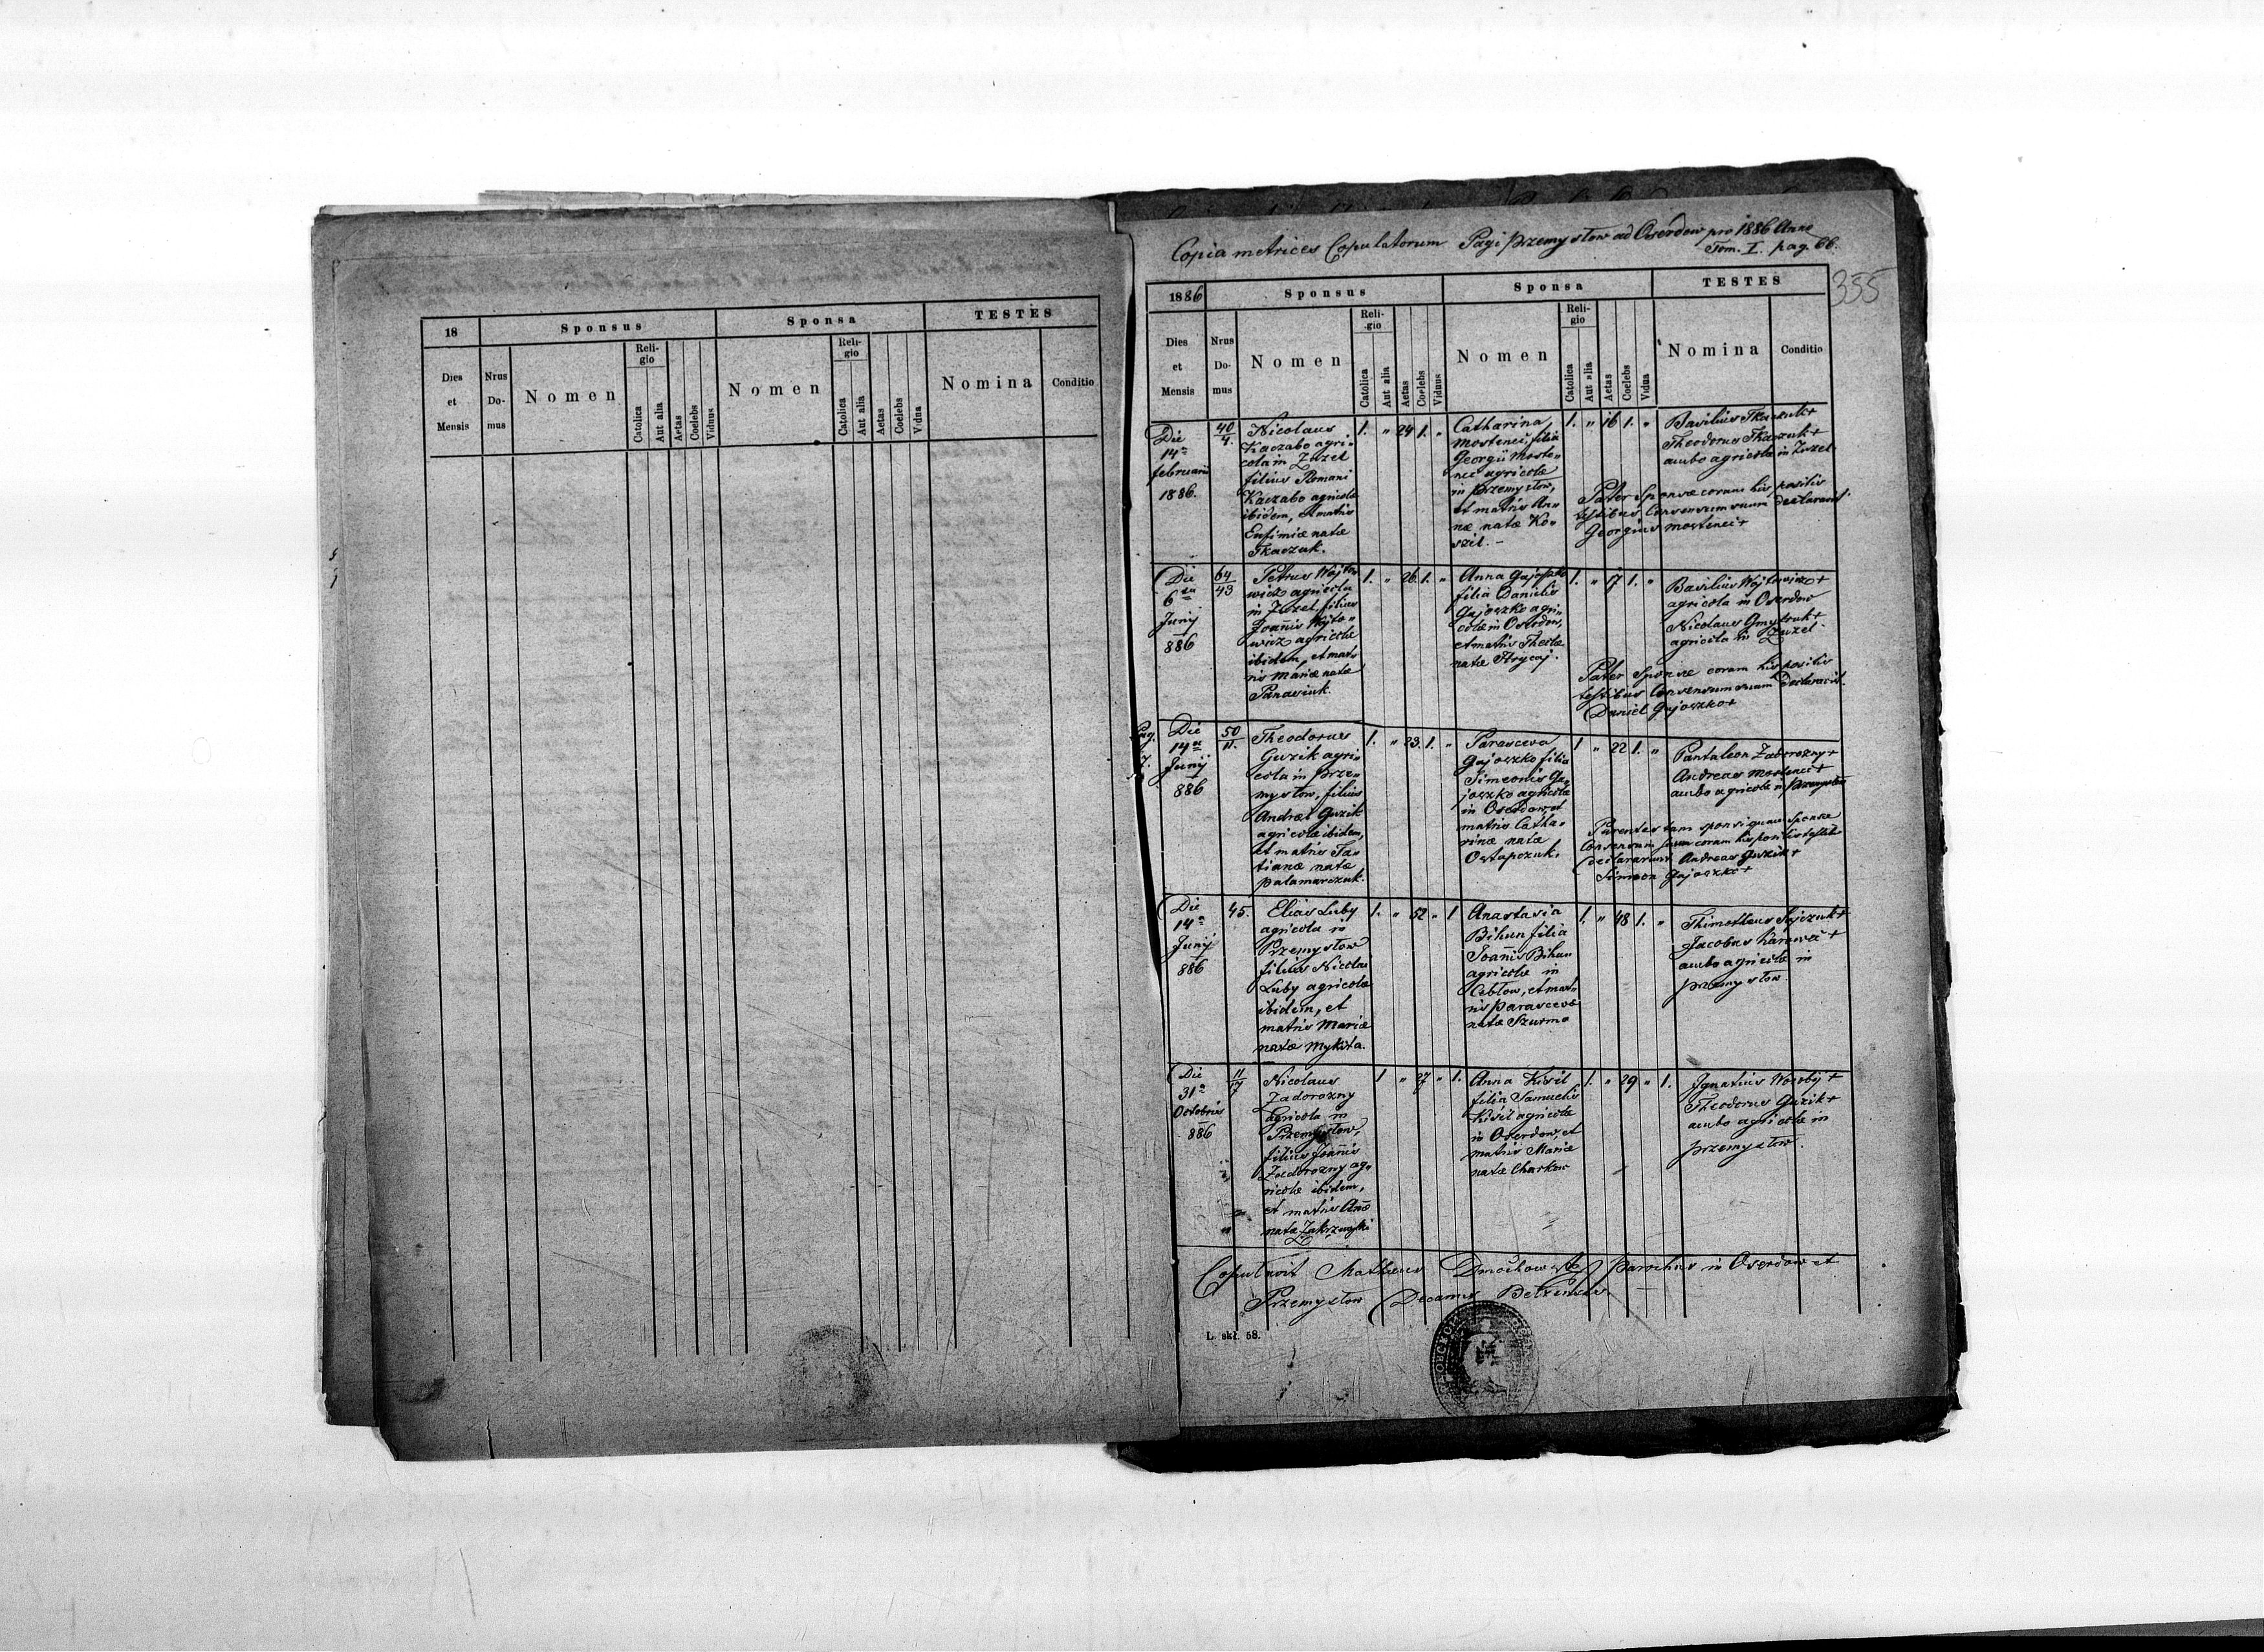 18
Sponsus
Sponsa
TESTES
Dies et Mensis
Nrus Do- mus
Nomen
Reli- gio
Catolica
Aut alia
Aetas
Coelebs
Viduus
Nomen
Reli- gio
Catolica
Aut alia
Aetas
Coelebs
Vidua
Nomina
Conditio
Copia metrices Copulatorum Pagi Przemysłow ad Oserdow pro 1886 Anno
Tom. I. pag. 66.
355
1886
Sponsus
Sponsa
TESTES
Dies et Mensis
Nrus Do- mus
Nomen
Reli- -gio
Catolica
Aut alia
Aetas
Coelebs
Viduus
Nomen
Reli- gio
Catolica
Aut alia
Aetas
Coelebs
Vidua
Nomina
Conditio
Die
14a
februarii
1886.
40/4.
Nicolaus
Kaczabo agri-
cola in Zuzel
filius Romani
Kaczabo agricolæ
ibidem, et matris
Eufimiæ natæ
Tkaczuk.
1. " 24 1. "
Catharina
Mostenci, filia
Georgii Moste-
nci agricolæ
in Przemysłow,
et matris An-
næ natæ Ko-
szil. -
1. " 16 1. "
Basilius Tkaczuk +
Theodorus Tkaczuk +
ambo agricolæ in Zuzel
Pater Sponsæ coram his positis
testibus Consensum suum declaravit.
Georgius Mostenci +
Die
6ta
Junij
886
64/43
Petrus Wojto
wicz agricola
in Zuzel, filius
Joannis Wojto-
wicz agricolæ
ibidem, et mat-
ris Mariæ natæ
Panasiuk.
1. " 26. 1. "
Anna Gajoszko
filia Danielis
Gajoszko agri-
colæ in Oserdow,
et matris Theclæ
natæ Hrycaj.
1. " 17 1. "
Basilius Wojtowicz +
agricola in Oserdow
Nicolaus Gmytruk +
agricola in Zuzel.
Pater Sponsæ coram his positis
testibus Consensum suum Declaravit.
Daniel Gajoszko +
Pag.
Die
14a
Junij
886
50/11.
Theodorus
Guzik agri-
cola in Prze-
mysłow, filius
Andreæ Guzik
agricolæ ibidem,
et matris Ta-
tianæ natæ
Palamarczuk.
1. " 23. 1. "
Parasceva
Gajoszko filia
Simeonis Ga-
joszko agricolæ
in Oserdow, et
matris Catha-
rinæ natæ
Ostapczuk.
1 " 22 1. "
Pantaleon Zadorozny +
Andreas Mostenci +
ambo agricolæ in Przemysłow
Parentes tam sponsi quam Sponsæ
Consensum suum coram his positis testibus
declararunt Andreas Guzik +
Simeon Gajoszko +
Die
14a
Junij
886
45.
Elias Luby
agricola in
Przemysłow
filius Nicolai
Luby agricolæ
ibidem, et
matris Mariæ
natæ Mykita.
1. " 52 " 1
Anastasia
Bihun filia
Joannis Bihun
agricolæ in
Cebłow, et mat-
ris Parascevæ
natæ Szurmo
1. " 48 1. "
Jacobus
ambo agricolæ in
Przemysłow
Die
31a
Octobris
886
11/17
Nicolaus
Zadorozny
agricola in
Przemysłow,
filius Joannis
Zadorozny ag-
ricolæ ibidem,
et matris Annæ
natæ
1 " 27 " 1.
Anna Kisil
filia Samuelis
Kisil agricolæ
in Oserdow, et
matris Mariæ
natæ Charkow
1. " 29 " 1.
Ignatius +
Theodorus Guzik +
ambo agricolæ in
Przemysłow.
Copulavit Matheus Parochus in Oserdow et
Przemysłow Decanus
L. skł. 58.